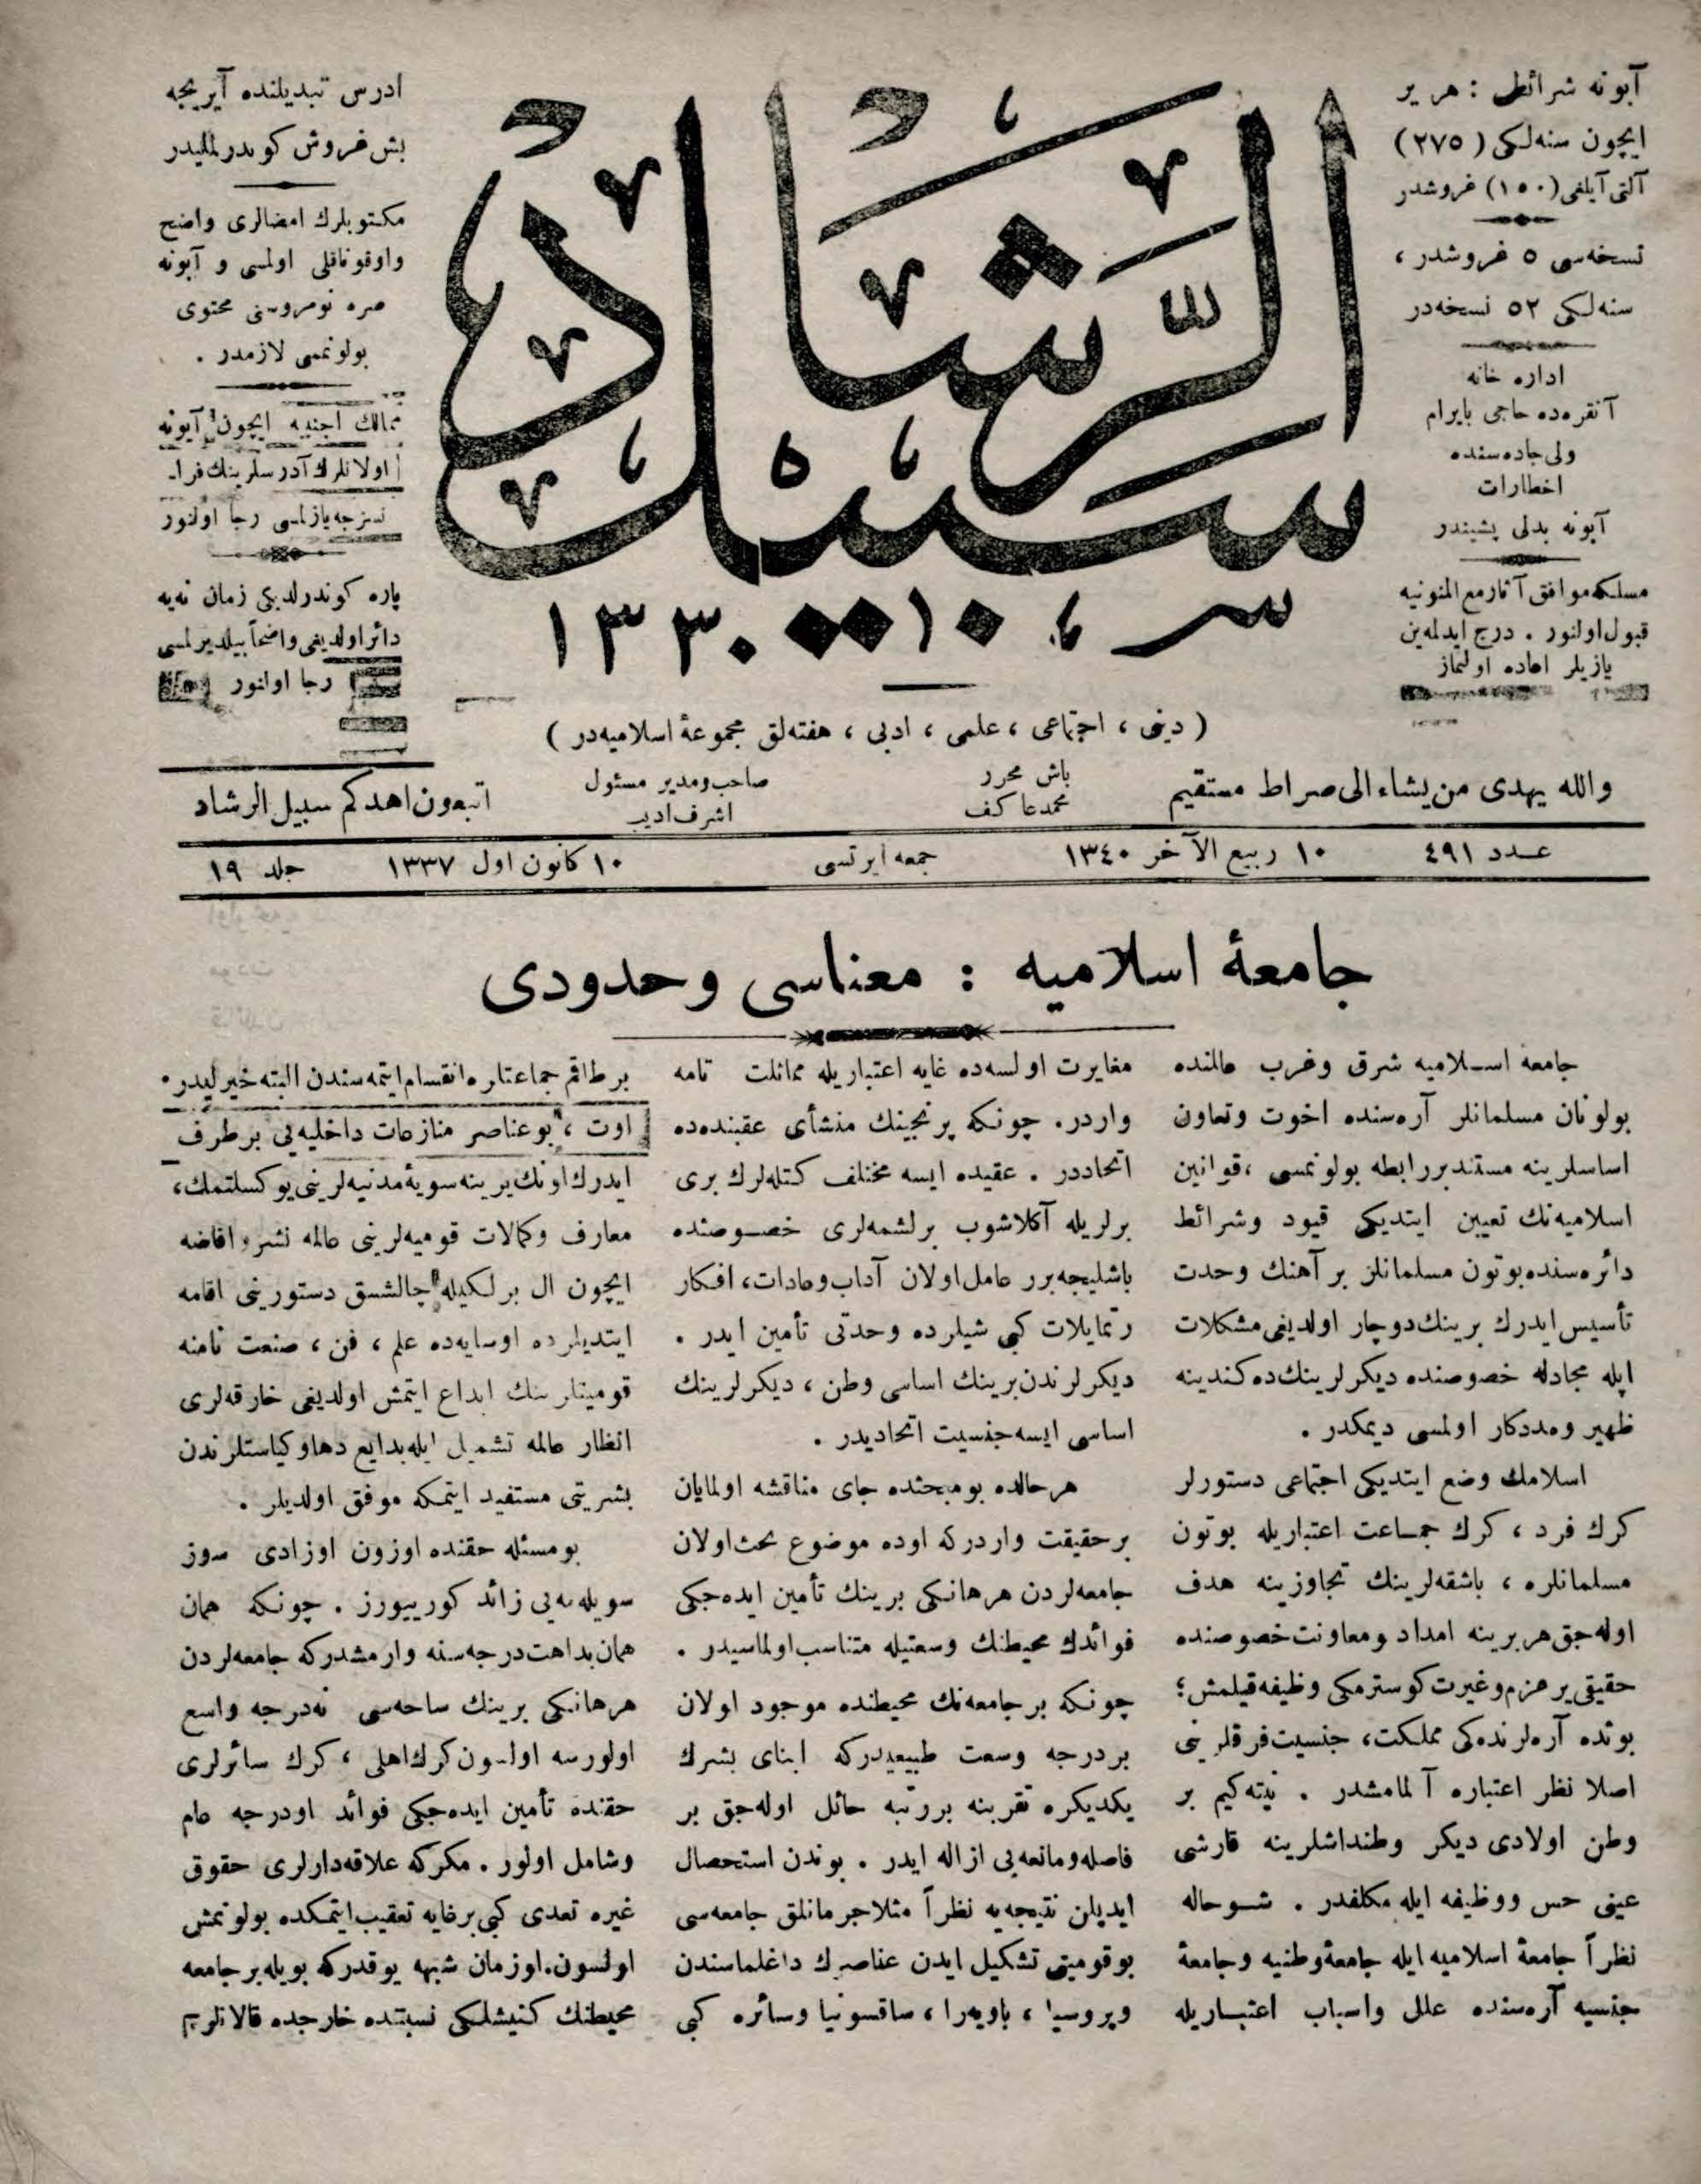 آبونه شرائطی : هر یر
ایچون سنه‌لکی (۲۷۵)
آلتی آیلغی (۱۵۰) غروشدر
نسخه‌سی ۵ غروشدر ،
سنه‌لکی ۵۲ نسخه‌در
اداره خانه
آنقره‌ده حاجی بایرام
ولی جاده‌سنده
اخطارات
آبونه بدلی پشیندر
مسلکه موافق آثار مع الممنونیه
قبول اولنور . درج ایدلمه‌ین
یازیلر اعاده اولنماز
سبیل الرشاد
۱۳۳۰
( دینی ، اجتماعی ، علمی ، ادبی ، هفته‌لق مجموعهٔ اسلامیه‌در )
ادرس تبدیلنده آیریجه
بش غروش کوندرلملیدر
مکتوبلرك امضالری واضح
واوقوناقلی اولمسی و آبونه
صره نومروسنی محتوی
بولونمسی لازمدر .
ممالك اجنبیه ایچون آبونه
اولانلرك آدرسلرینك فرا-
نسزجه یازلمسی رجا اولنور
پاره کوندرلدیکی زمان نه‌یه
دائر اولدیغی واضحاً بیلدیرلمسی
رجا اولنور
والله یهدی من یشاء الی صراط مستقیم
باش محرر
محمد عاکف
صاحب و مدیر مسئول
اشرف ادیب
اتبعون اهدکم سبیل الرشاد
عـدد ٤٩١
۱۰ ربیع الآخر ۱۳٤۰
جمعه ایرتسی
۱۰ کانون اول ۱۳۳۷
جلد ۱۹
جامعهٔ اسلامیه : معناسی وحدودی
جامعهٔ اسـلامیه شرق وغرب عالمنده
بولونان مسلمانلر آره‌سنده اخوت وتعاون
اساسلرینه مستند بر رابطه بولونمسی ، قوانین
اسلامیه‌نك تعیین ایتدیکی قیود وشرائط
دائره‌سنده بوتون مسلمانلر بر آهنك وحدت
تأسیس ایدرك برینك دوچار اولدیغی مشکلات
ایله مجادله خصوصنده دیکرلرینك ده کندینه
ظهیر ومددکار اولمسی دیمکدر .
اسلامك وضع ایتدیکی اجتماعی دستورلر
کرك فرد ، کرك جمـاعت اعتباریله بوتون
مسلمانلره ، باشقه‌لرینك تجاوزینه هدف
اوله‌جق هر برینه امداد و معاونت خصوصنده
حقیقی بر عزم و غیرت کوسترمکی وظیفه قیلمش ؛
بونده آره‌لرنده‌کی مملکت، جنسیت فرقلرینی
اصلا نظر اعتباره آلمامشدر . نیته‌کیم بر
وطن اولادی دیکر وطنداشلرینه قارشی
عینی حس ووظیفه ایله مکلفدر . شـو حاله
نظراً جامعهٔ اسلامیه ایله جامعهٔ وطنیه وجامعهٔ
جنسیه آره‌سنده علل واسباب اعتبـاریله
مغایرت اولسه‌ده غایه اعتباریله مماثلت تامه
واردر. چونکه برنجینك منشأی عقیده‌ده
اتحاددر . عقیده ایسه مختلف کتله‌لرك بری
برلریله آکلاشوب برلشمه‌لری خصـوصنده
باشلیجه برر عامل اولان آداب و عادات، افکار
و تمایلات کبی شیلرده وحدتی تأمین ایدر .
دیکرلرندن برینك اساسی وطن ، دیکرلرینك
اساسی ایسه جنسیت اتحادیدر .
هر حالده بو مبحثده جای مناقشه اولمایان
بر حقیقت واردرکه اوده موضوع بحث اولان
جامعه‌لردن هر هانکی برینك تأمین ایده‌جکی
فوائدك محیطنك وسعتیله متناسب اولماسیدر .
چونکه بر جامعه‌نك محیطنده موجود اولان
بر درجه وسعت طبیعیدرکه ابنای بشرك
یکدیکره تقربنه بر رتبه حائل اوله‌جق بر
فاصله ومانعه‌یی ازاله ایدر . بوندن استحصال
ایدیلن نتیجه‌یه نظراً مثلا جرمانلق جامعه‌سی
بو قومیتی تشکیل ایدن عناصرك داغلماسندن
وپروسیا ، باویه‌را ، ساقسونیا وسائره کبی
بر طاقم جماعتلره انقسام ایتمه‌سندن البته خیرلیدر.
اوت ، بو عناصر منازعات داخلیه‌یی بر طرف
ایدرك اونك یرینه سویهٔ مدنیه‌لرینی یوکسلتمك،
معارف وکمالات قومیه‌لرینی عالمه نشر و افاضه
ایچون ال برلکیله چالشمق دستورینی اقامه
ایتدیلرده اوسایه‌ده علم ، فن ، صنعت نامنه
قومیتلرینك ابداع ایتمش اولدیغی خارقه‌لری
انظار عالمه تشمیل ایله بدایع دها وکیاستلرندن
بشریتی مستفید ایتمکه موفق اولدیلر .
بو مسئله حقنده اوزون اوزادی سوز
سویله‌مه‌یی زائد کورییورز . چونکه همان
همان بداهت درجه‌سنه وارمشدرکه جامعه‌لردن
هر هانکی برینك ساحه‌سی نه‌درجه واسع
اولورسه اولسون کرك اهلی ، کرك سائرلری
حقنده تأمین ایده‌جکی فوائد اودرجه عام
وشامل اولور . مکرکه علاقه‌دارلری حقوق
غیره تعدی کبی بر غایه تعقیب ایتمکده بولونمش
اولسون. اوزمان شبهه یوقدرکه بویله بر جامعه
محیطنك کنیشلکی نسبتنده خارجده قالانلرچه